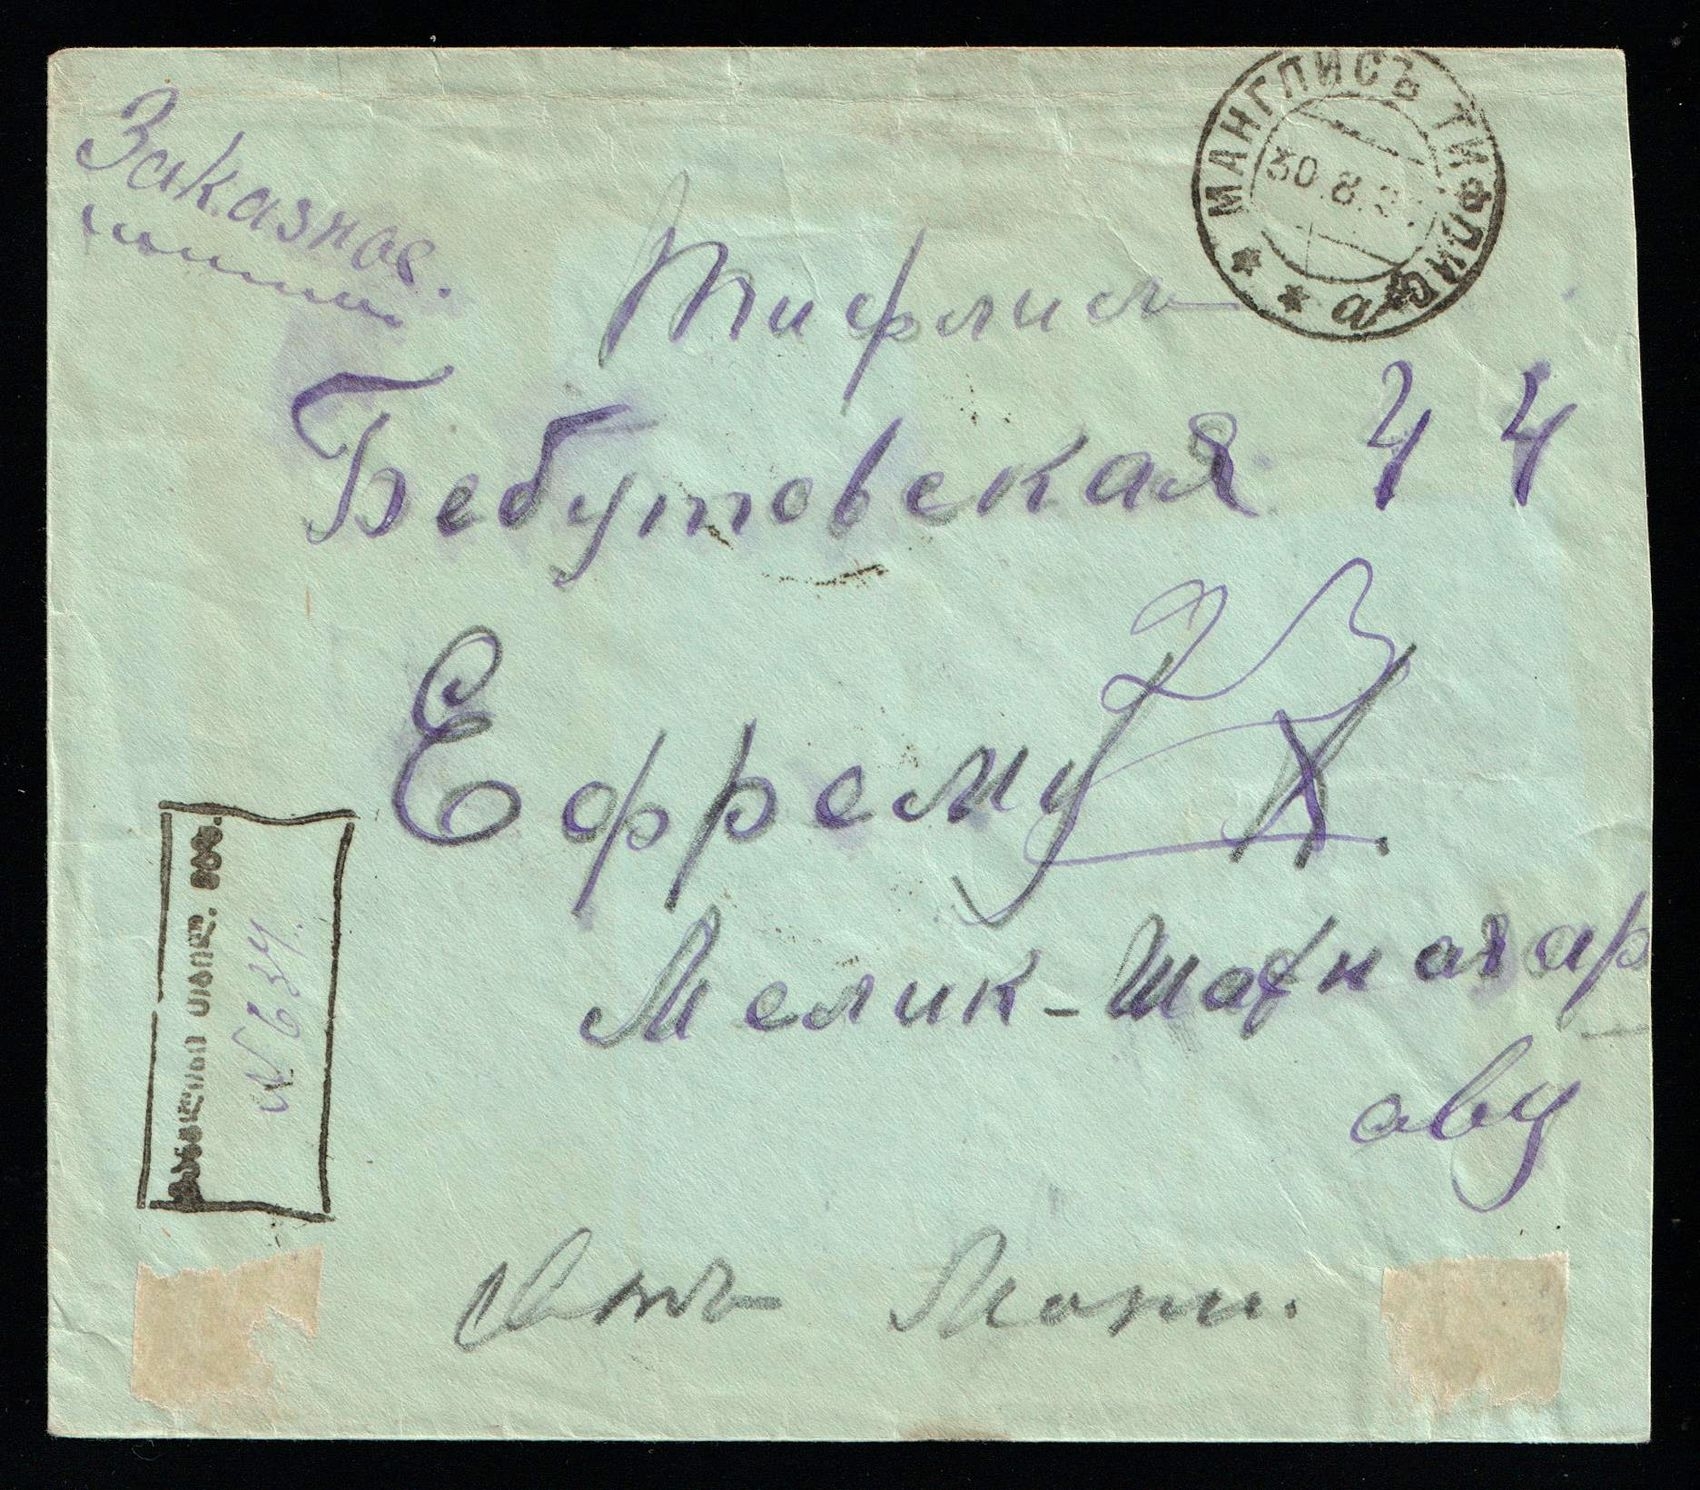 Заказное.
МАНГЛИСЪ ТИФЛИС.
30.8.2
а
Тифлисъ
Бебутовская 44
Ефрему
Мелик-Шахназар
ову
№ 634.
Отъ